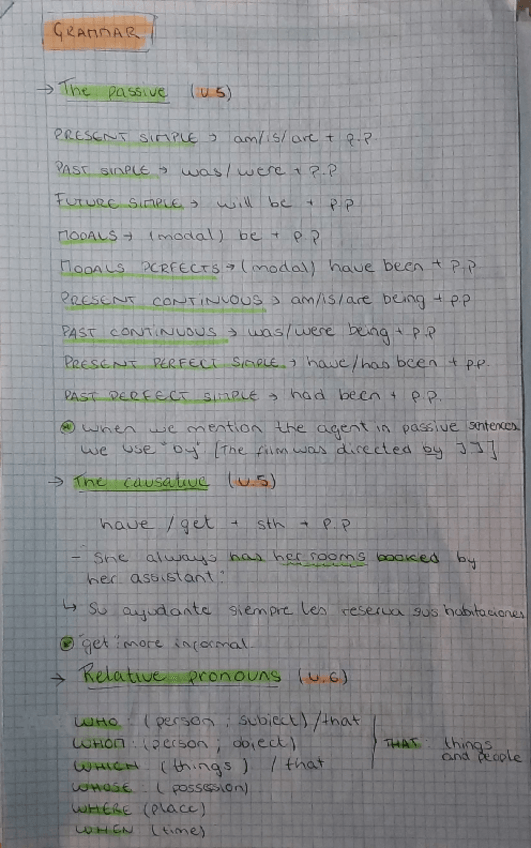 GRAMMAR
→ The passive (U.5)
PRESENT SIMPLE → am/is/are + P.P
PAST SIMPLE → was/were + P.P
FUTURE SIMPLE → will be + P.P
MODALS → (modal) be + P.P
MODALS PERFECTS → (modal) have been + P.P
PRESENT CONTINUOUS → am/is/are being + PP
PAST CONTINUOUS → was/were being + P.P
PRESENT PERFECT SIMPLE → have/has been + PP.
PAST PERFECT SIMPLE → had been + P.P.
when we mention the agent in passive sentences
we use "by" [The film was directed by JJ]
→ The causative (U.5)
have / get + sth + P.P
- She always has her rooms booked by
her assistant.
↳ Su ayudante siempre les reserva sus habitaciones
"get" more informal
→ Relative pronouns (U.6)
WHO: (person ; subject) / that
WHOM: (person ; object)
THAT: things
and people
WHICH (things) / that
WHOSE: (possession)
WHERE (place)
WHEN (time)